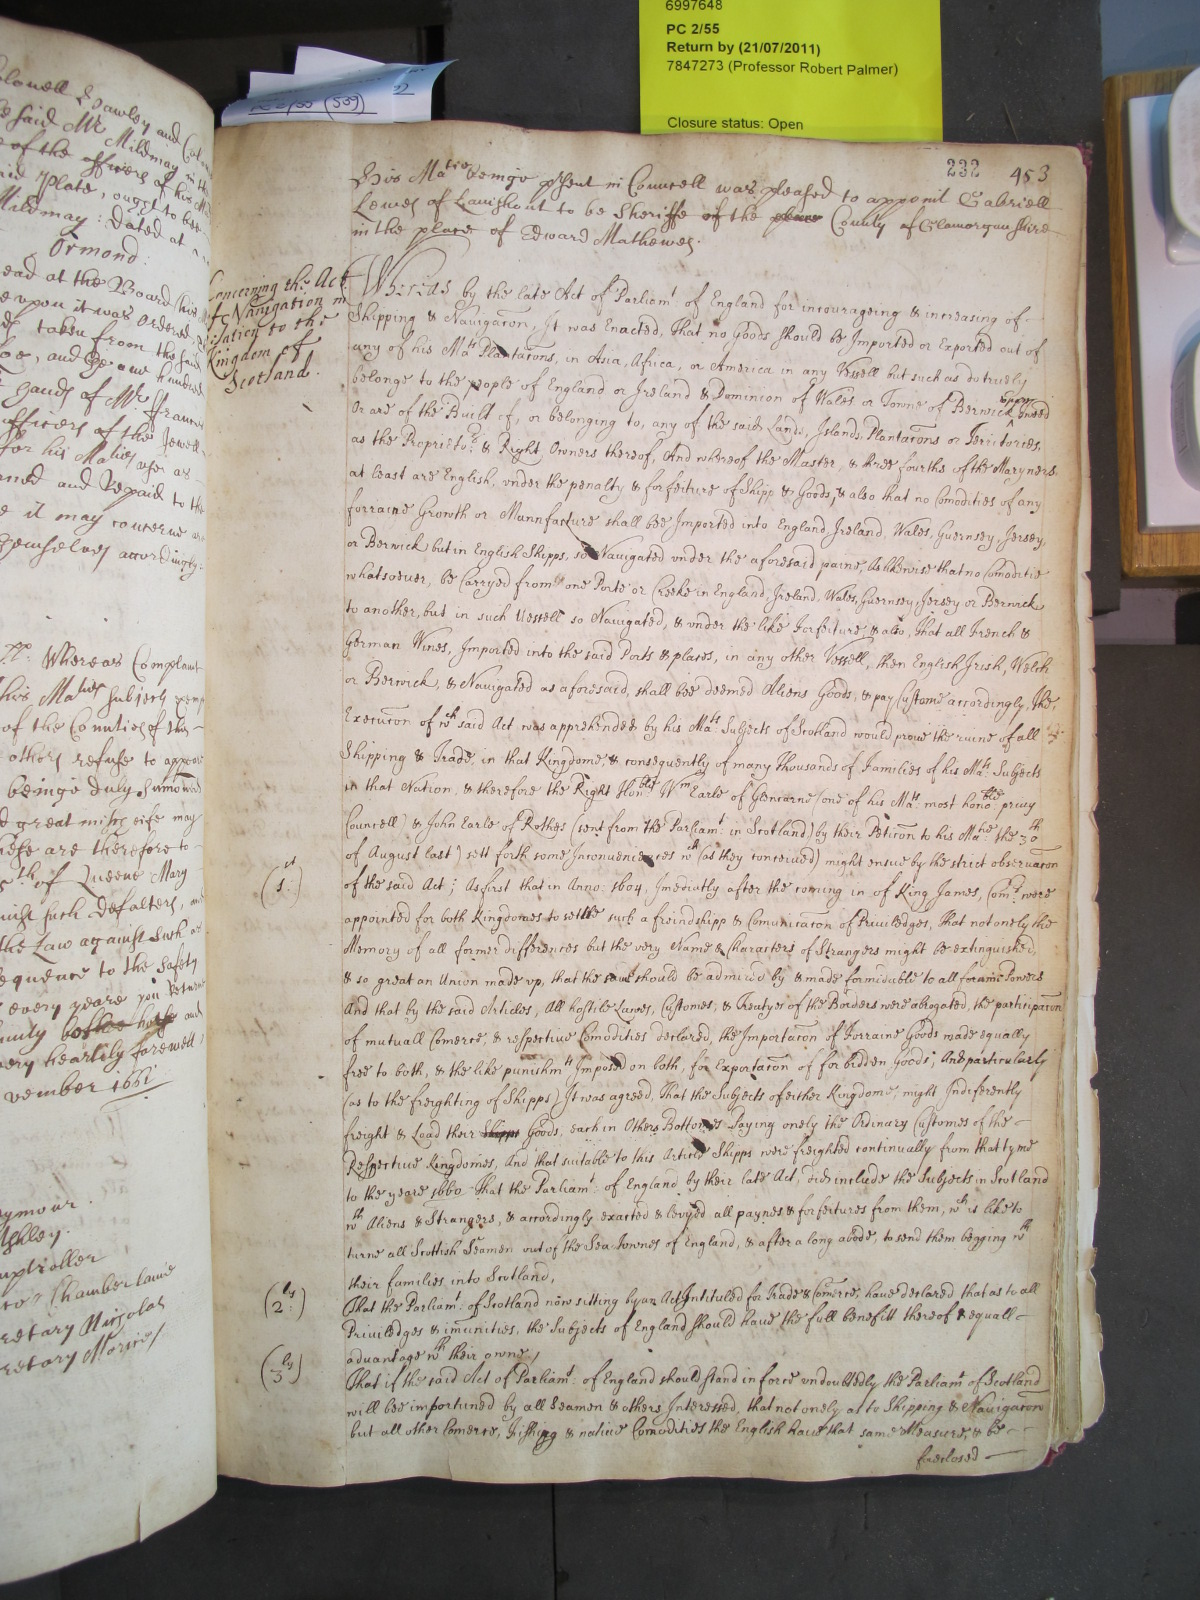 6997648
PC 2/55
Return by (21/07/2011)
7847273 (Professor Robert Palmer)
Closure status: Open
22
(539)
and
said Mr Mildmay in
of the officers of his
Plate, ought to bee
Mildmay: Dated at
Ormond.
ead at the Board
upon it was Ordered
taken from the said
and
hands of Mr
officers of the Jewell
for his Maties use as
and Repaid to the
it may concerne
themselves accordingly:
Whereas Complaint
his Maties Subjects
of the Counties of
others refuse to appeare
beinge duly Sumoned
great mischeife may
These are therefore to
of Queene Mary
such defalters, and
the Law against such as
equence to the Safety
every yeare you
and
very heartily farewell,
vember 1661
ymour.
Ashley.
mptroller
Chamberlaine
cretary Nicholas
cretary Morice/
232 453
His Matie beinge psent in Councell was pleased to appoint Gabriell
Lewes of Lanishant to be Sheriffe of the place County of Glamorganshire
in the place of Edward Mathewes.
Concerning the Act
of Navigation in
relation to the
Kingdom of
Scotland.
Whereas by the late Act of Parliamt of England for incourageing & increasing of
Shipping & Navigacon, It was Enacted, That no Goods should be Imported or Exported out of
any of his Mats Plantacons, in Asia, Africa, or America in any Vessell but such as do truely
belonge to the people of England or Ireland & Dominion of Wales or Towne of Berwick upon Tweed
Or are of the Built of, or belonging to, any of the said Lands, Islands, Plantacons or Territories,
as the Proprietors & Right Owners thereof, And whereof the Master, & three fourths of the Maryners
at least are English, vnder the penalty & forfeiture of Shipp & Goods, & also that no Comodities of any
forraine Growth or Mannfacture shall bee Imported into England, Ireland, Wales, Guernsey, Jersey,
or Berwick but in English Shipps, so Navigated vnder the aforesaid paine, As likewise that no Comoditie
whatsoever, be Carryed from one Porte or Creeke in England, Ireland, Wales, Guernsey, Jersey or Berwick
to another, but in such Vessell so Navigated, & vnder the like Forfeiture, & also, That all French &
German Wines, Imported into the said Ports & places, in any other Vessell, then English, Irish, Welch
or Berwick, & Navigated as aforesaid, shall bee deemed Aliens Goods, & pay Custome accordingly, The
Execucon of wch said Act was apprehended by his Mats Subjects of Scotland would prove the ruine of all
Shipping & Trade, in that Kingdome, & consequently of many Thousands of Families of his Mats Subjects
in that Nation, & therefore the Right Honble Wm Earle of Glencarne (one of his Mats most honoble privy
Councell) & John Earle of Rothes (sent from the Parliamt in Scotland) by their Peticon to his Matie the 30th
of August last) sett forth some Inconveniences wch (as they conceived) might ensue by the strict observacon
(1st) of the said Act; As first that in Anno: 1604. Imediatly after the coming in of King James, Comrs were
appointed for both Kingdomes to settle such a freindshipp & Comunicacon of Priviledges, That not onely the
Memory of all former differences but the very Name & Characters of Strangers might be extinguished,
& so great an Union made vp, that the same should be admired by & made formidable to all forraine Powers
And that by the said Articles, All hostile Lawes, Customes, & Treatyes of the Borders were abrogated, the participacon
of mutuall Comerce, & respective Comodities declared, the Importacon of Forraine Goods made equally
free to both, & the like punishmts Imposed on both, for Exportacon of forbidden Goods; And particularly
(as to the freighting of Shipps) It was agreed, That the Subjects of either Kingdome, might Indiferently
freight & Load their Shipps Goods, each in Others Bottomes Paying onely the Ordinary Customes of the
Respective Kingdomes, And that suitable to this Article Shipps were freighted continually from that tyme
to the yeare 1660. That the Parliamt of England by their late Act, did include the Subjects in Scotland
wth Aliens & Strangers, & accordingly exacted & levyed all paynes & forfeitures from them, wch is like to
turne all Scottish Seamen out of the Sea Townes of England, & after a long abode, to send them begging wth
their families into Scotland,
(2ly) That the Parliamt of Scotland now sitting by an Act Intituled for Trade & Comerce, have declared that as to all
Priviledges & imunities, the Subjects of England should have the full benefitt thereof & equall
advantage wth their owne/
(3ly) That if the said Act of Parliamt of England should stand in force vndoubtedly the Parliamt of Scotland
will bee importuned by all Seamen & others Interessed, that not onely as to Shipping & Navigacon
but all other Comerce, Fishing & native Comodities the English have that same Measure, & be
foreclosed